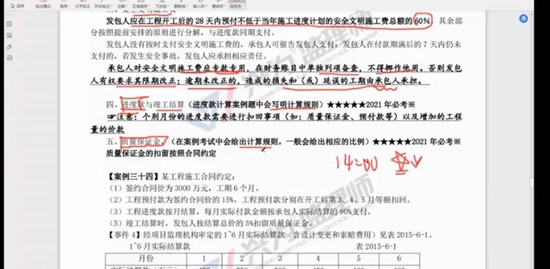 发包人应在工程开工后的 28 天内预付不低于当年施工进度计划的安全文明施工费总额的60%,其余部分按照提前安排的原则进行分解,与进度款同期支付。
发包人没有按时支付安全文明施工费的,承包人可催告发包人支付;发包人在付款期满后的 7 天内仍未支付的,若发生安全事故,发包人应承担相应责任。
承包人对安全文明施工费应专款专用,在财务账目中单独列项备查,不得挪作他用,否则发包人有权要求其限期改正;逾期未改正的,造成的损失和(或)延误的工期由承包人承担。
四、进度款与竣工结算(进度款计算案例题中会写明计算规则)★★★★★2021 年必考※
☞注意:个别月份的进度款需要进行扣回事项(如:质量保证金、预付款等)以及增加的工程量的价款
五、质量保证金。(在案例考试中会给出计算规则,一般会给出相应的比例)★★★★★2021 年必考※
质量保证金的扣留按照合同约定
14:00
【案例三十四】某工程施工合同约定:
(1)签约合同价为3000万元,工期6个月。
(2)工程预付款为签约合同价的15%,工程预付款分别在开工后第3、4、5月等额扣回。
(3)工程进度款按月结算,每月实际付款金额按承包人实际结算款的90%支付。
(5)竣工结算时,发包人按结算总价的5%扣留质量保证金。
【事件4】经项目监理机构审定的1~6月实际结算款(含设计变更和索赔费用)见表 2015-6-1。
1~6月实际结算款 表 2015-6-1
月份 1 2 3 4 5 6